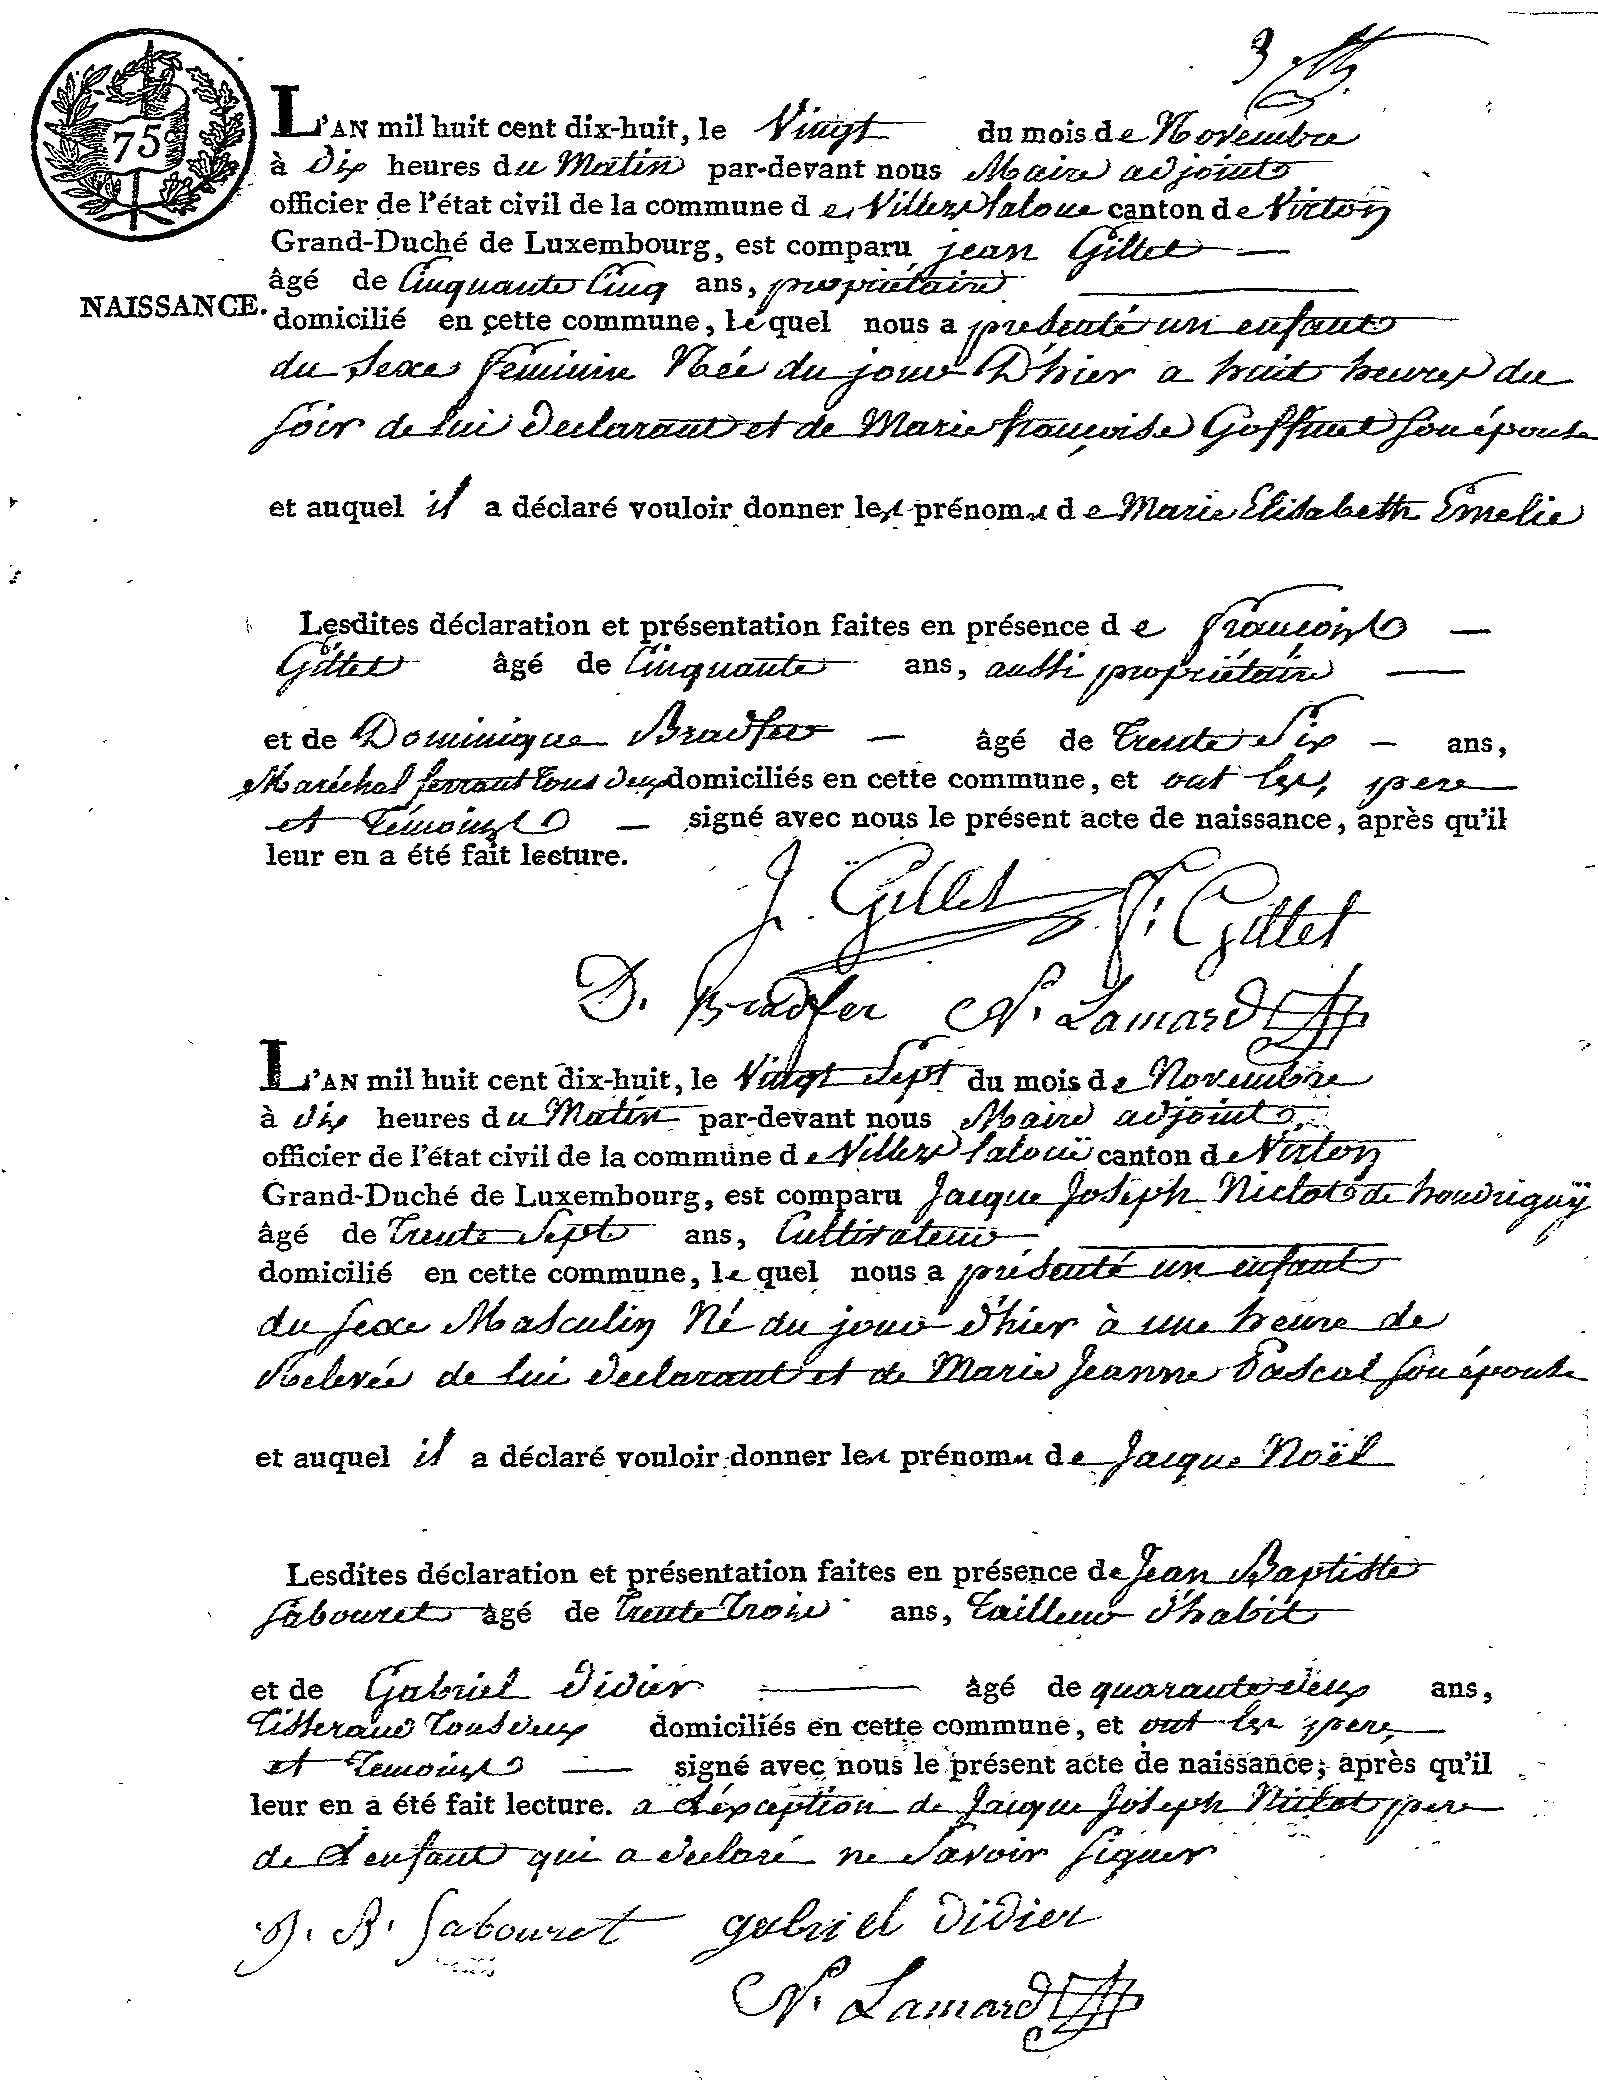 3
75
L'AN mil huit cent dix-huit, le Vingt du mois de Novembre
à dix heures du Matin par-devant nous Maire adjoint
officier de l'état civil de la commune de Villers laloue canton de Virton
Grand-Duché de Luxembourg, est comparu jean Gillet
âgé de Cinquante Cinq ans, propriétaire
NAISSANCE.
domicilié en cette commune, lequel nous a presenté un enfant
du Sexe feminin Née du jour D'hier a huit heures du
soir de lui declarant et de Marie françoise Goffinet son épouse
et auquel il a déclaré vouloir donner les prénoms de Marie Elisabeth Emelie
Lesdites déclaration et présentation faites en présence de François
Gillet âgé de Cinquante ans, aussi propriétaire
et de Dominique Bradfer âgé de trente Six ans,
Maréchal ferrant tous deux domiciliés en cette commune, et ont les pere
et témoins signé avec nous le présent acte de naissance, après qu'il
leur en a été fait lecture.
J. Gillet F. Gillet
D. Bradfer N. Lamard
L'AN mil huit cent dix-huit, le Vingt Sept du mois de Novembre
à dix heures du Matin par-devant nous Maire adjoint
officier de l'état civil de la commune de Villers laloüe canton de Virton
Grand-Duché de Luxembourg, est comparu Jacque Joseph Niclot de houdrigny
âgé de trente Sept ans, Cultivateur
domicilié en cette commune, le quel nous a présenté un enfant
du sexe Masculin Né du jour d'hier à une heure de
Relevée de lui declarant et de Marie Jeanne Pascal son épouse
et auquel il a déclaré vouloir donner les prénoms de Jacque Noël
Lesdites déclaration et présentation faites en présence de Jean Baptiste
Sabouret âgé de trente trois ans, tailleur d'habit
et de Gabriel didier âgé de quarante deux ans,
tisserand tous deux domiciliés en cette commune, et ont les pere
et temoins signé avec nous le présent acte de naissance, après qu'il
leur en a été fait lecture. a L'exception de Jacque Joseph Niclot pere
de L'enfant qui a declaré ne Savoir signer
J. B. Sabouret gabriel didier
N. Lamard